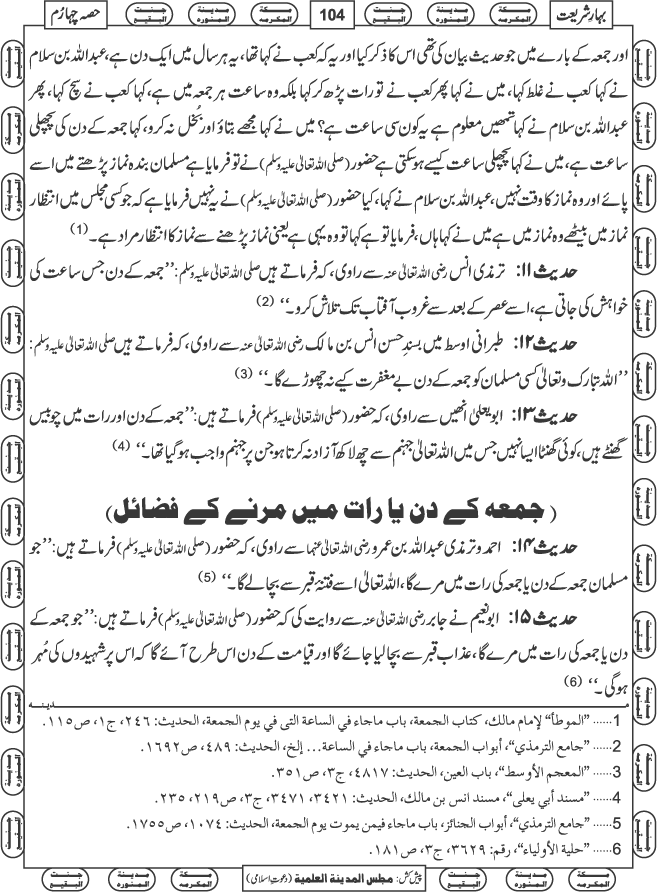 بہارِشریعت
104
حصہ چہارم
اور جمعہ کے بارے میں جو حدیث بیان کی تھی اس کا ذکر کیا اور یہ کہ کعب نے کہا تھا، یہ ہر سال میں ایک دن ہے، عبداللہ بن سلام
نے کہا کعب نے غلط کہا، میں نے کہا پھر کعب نے تورات پڑھ کر کہا بلکہ وہ ساعت ہر جمعہ میں ہے، کہا کعب نے سچ کہا، پھر
عبداللہ بن سلام نے کہا تمھیں معلوم ہے یہ کون سی ساعت ہے؟ میں نے کہا مجھے بتاؤ اور بُخل نہ کرو، کہا جمعہ کے دن کی پچھلی
ساعت ہے، میں نے کہا پچھلی ساعت کیسے ہوسکتی ہے حضور (صلی اللہ تعالیٰ علیہ وسلم) نے تو فرمایا ہے مسلمان بندہ نماز پڑھتے میں اسے
پائے اور وہ نماز کا وقت نہیں، عبداللہ بن سلام نے کہا، کیا حضور (صلی اللہ تعالیٰ علیہ وسلم) نے یہ نہیں فرمایا ہے کہ جو کسی مجلس میں انتظار
نماز میں بیٹھے وہ نماز میں ہے میں نے کہا ہاں، فرمایا تو ہے کہا تو وہ یہی ہے یعنی نماز پڑھنے سے نماز کا انتظار مراد ہے۔ (1)
حدیث ۱۱: ترمذی انس رضی اللہ تعالیٰ عنہ سے راوی، کہ فرماتے ہیں صلی اللہ تعالیٰ علیہ وسلم: ’’جمعہ کے دن جس ساعت کی
خواہش کی جاتی ہے، اسے عصر کے بعد سے غروب آفتاب تک تلاش کرو۔‘‘ (2)
حدیث ۱۲: طبرانی اوسط میں بسندِ حسن انس بن مالک رضی اللہ تعالیٰ عنہ سے راوی، کہ فرماتے ہیں صلی اللہ تعالیٰ علیہ وسلم:
’’اللہ تبارک و تعالیٰ کسی مسلمان کو جمعہ کے دن بے مغفرت کیے نہ چھوڑے گا۔‘‘ (3)
حدیث ۱۳: ابو یعلیٰ انھیں سے راوی، کہ حضور (صلی اللہ تعالیٰ علیہ وسلم) فرماتے ہیں: ’’جمعہ کے دن اور رات میں چوبیس
گھنٹے ہیں، کوئی گھنٹا ایسا نہیں جس میں اللہ تعالیٰ جہنم سے چھ لاکھ آزاد نہ کرتا ہو جن پر جہنم واجب ہوگیا تھا۔‘‘ (4)
(جمعہ کے دن یا رات میں مرنے کے فضائل)
حدیث ۱۴: احمد و ترمذی عبداللہ بن عمرو رضی اللہ تعالیٰ عنہما سے راوی، کہ حضور (صلی اللہ تعالیٰ علیہ وسلم) فرماتے ہیں: ’’جو
مسلمان جمعہ کے دن یا جمعہ کی رات میں مرے گا، اللہ تعالیٰ اسے فتنۂ قبر سے بچالے گا۔‘‘ (5)
حدیث ۱۵: ابو نعیم نے جابر رضی اللہ تعالیٰ عنہ سے روایت کی کہ حضور (صلی اللہ تعالیٰ علیہ وسلم) فرماتے ہیں: ’’جو جمعہ کے
دن یا جمعہ کی رات میں مرے گا، عذاب قبر سے بچالیا جائے گا اور قیامت کے دن اس طرح آئے گا کہ اس پر شہیدوں کی مُہر
ہوگی۔‘‘ (6)
مدینہ
1 ...... ”الموطأ“ لإمام مالك، كتاب الجمعة، باب ماجاء في الساعة التى في يوم الجمعة، الحديث: ٢٤٦، ج١، ص١١٥.
2 ...... ”جامع الترمذي“، أبواب الجمعة، باب ماجاء في الساعة... إلخ، الحديث: ٤٨٩، ص١٦٩٢.
3 ...... ”المعجم الأوسط“، باب العين، الحديث: ٤٨١٧، ج٣، ص٣٥١.
4 ...... ”مسند أبي يعلى“، مسند انس بن مالك، الحديث: ٣٤٢١، ٣٤٧١، ج٣، ص٢١٩، ٢٣٥.
5 ...... ”جامع الترمذي“، أبواب الجنائز، باب ماجاء فيمن يموت يوم الجمعة، الحديث: ١٠٧٤، ص١٧٥٥.
6 ...... ”حلية الأولياء“، رقم: ٣٦٢٩، ج٣، ص١٨١.
پیش کش: مجلس المدینة العلمیة (دعوتِ اسلامی)